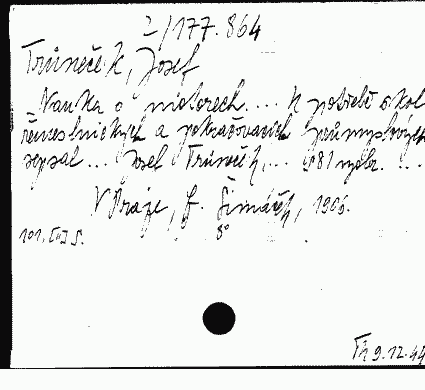 2/177.864
Trůneček, Josef
Nauka o motorech.... K potřebě škol
řemeslnických a pokračovacích průmyslových
sepsal ... Josef Trůneček,... S 81 vyobr. ...
V Praze, F. Šimáček, 1906.
101, [III] s. 8°
Th 9.12.44